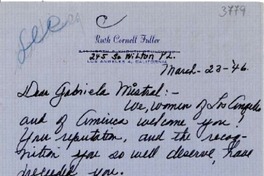 3779
Ruth Cornett Fuller
245 So. Wilton Pl.
LOS ANGELES 4, CALIFORNIA
March-23-46.
Dear Gabriela Mistral:-
We, women of Los Angeles
and of America welcome you!
Your reputation, and the recog-
nition you so well deserve, have
preceded you.